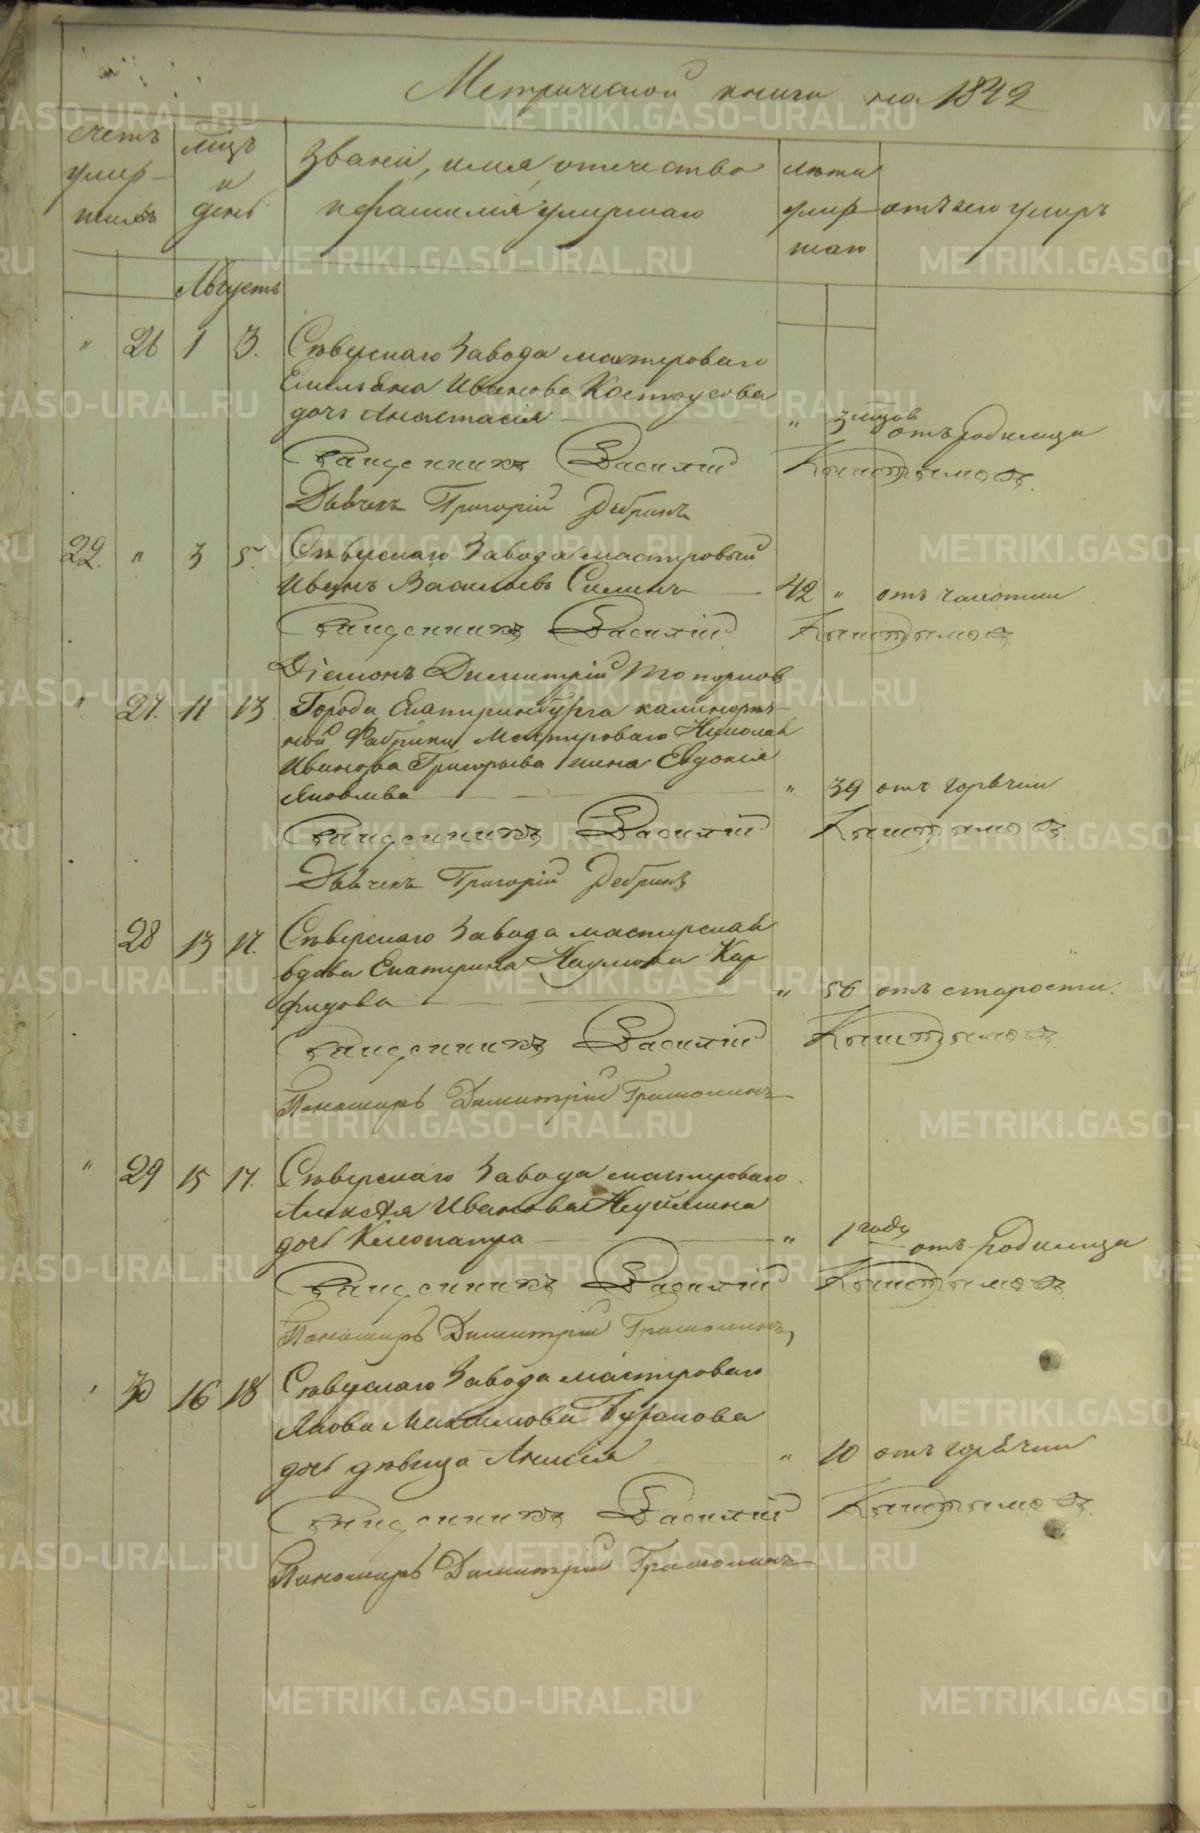 Метрической книги на 1849
Счетъ умер-шихъ
Мѣцъ и день
Званiе, имя, отчество и фамилiя умершаго
лѣта умер-шаго
отъ чего умеръ
Августъ
" 26 1 3. Сѣверскаго Завода мастероваго
Емельяна Иванова Костоусова
дочь Анастасiя " 3 мѣцов отъ родимца
Священникъ Василiй Кыштымовъ.
Дьячекъ Григорiй Дебринъ
22. " 3 5. Сѣверскаго Завода мастеровый
Иванъ Васильевъ Силинъ 42 " отъ чахотки
Священникъ Василiй Кыштымовъ
Дiаконъ Димитрiй Топорковъ
" 27. 11 13 Города Екатеринбурга
ной Фабрики Мастероваго Николая
Иванова Григорьева жена Евдокiя
Яковлева " 39 отъ горячки
Священникъ Василiй Кыштымовъ
Дьячекъ Григорiй Дебринъ
28 13 17. Сѣверскаго Завода мастерская
вдова Екатерина Наумова Кар
фидова " 56 отъ старости.
Священникъ Василiй Кыштымовъ
Пономарь Димитрiй Грамолинъ
" 29 15 17. Сѣверскаго Завода мастероваго
Алексѣя Иванова Неуймина
дочь Клеопатра " 1 годъ отъ родимца
Священникъ Василiй Кыштымовъ
Пономарь Димитрiй Грамолинъ
" 30 16 18 Сѣверскаго Завода мастероваго
Якова Максимова
дочь дѣвица Анисiя " 10 отъ горячки
Священникъ Василiй Кыштымовъ.
Пономарь Димитрiй Грамолинъ
METRIKI.GASO-URAL.RU